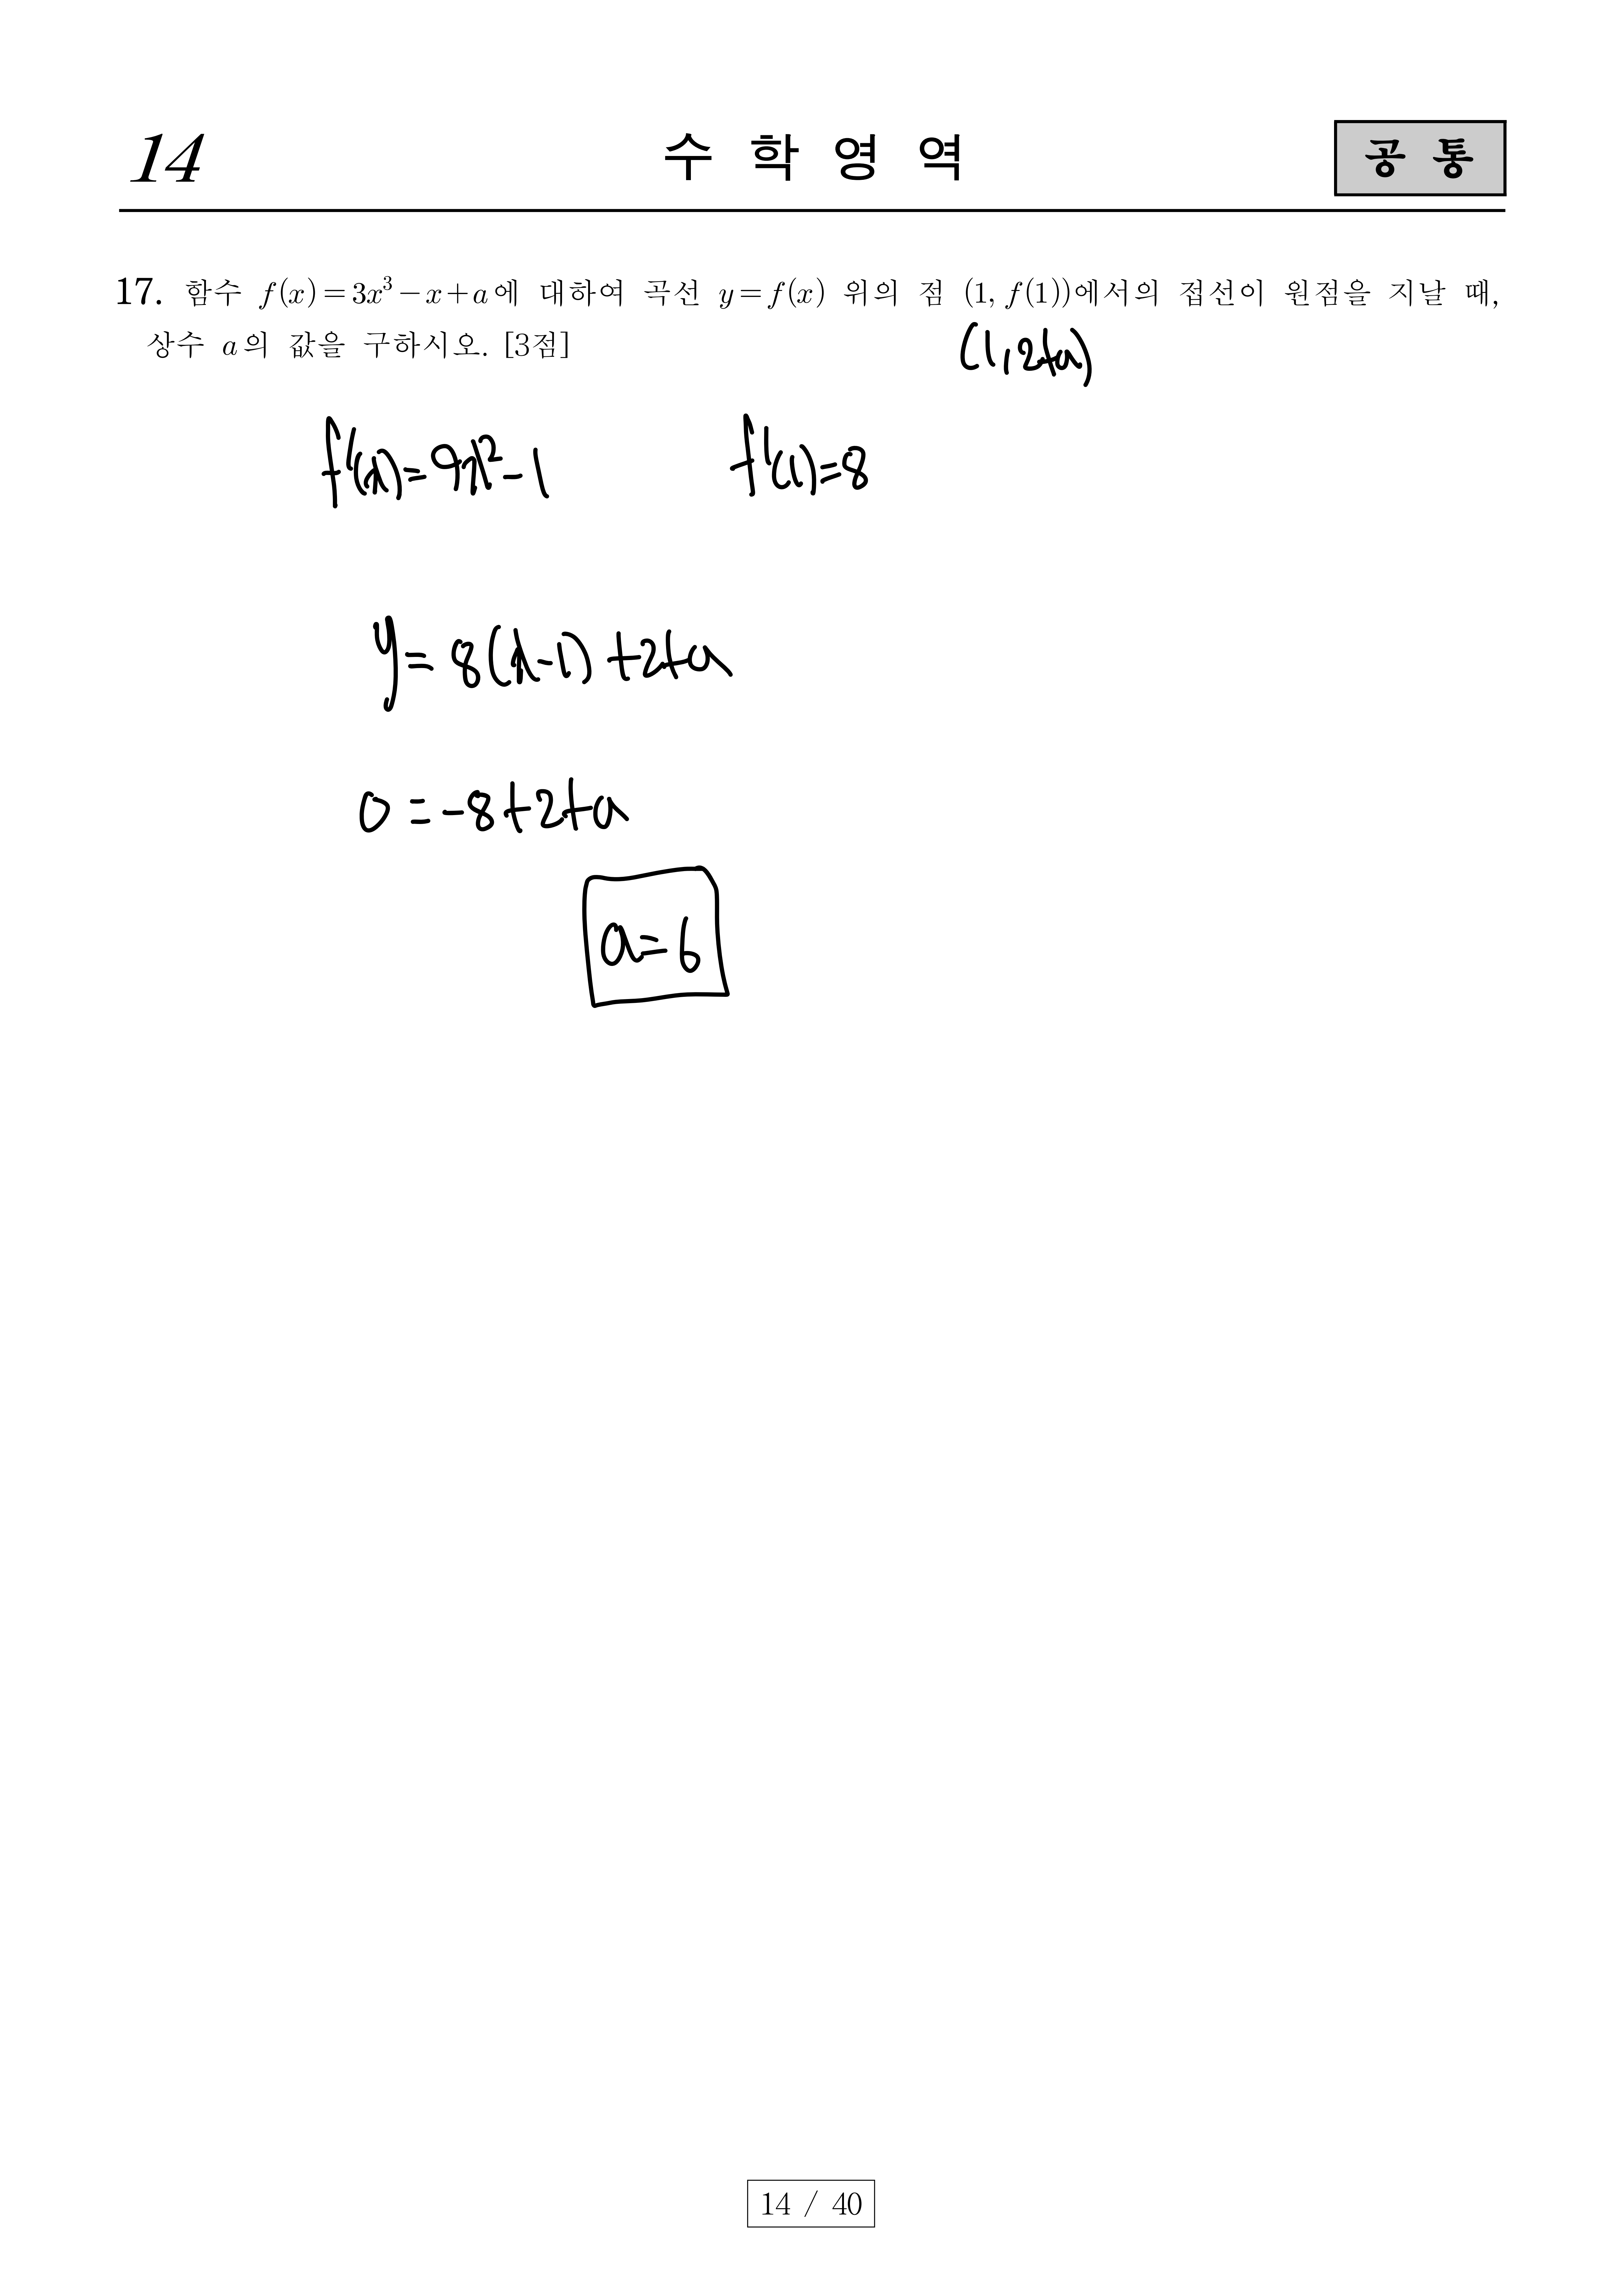 14 수 학 영 역 공 통
17. 함수 f(x)=3x³-x+a에 대하여 곡선 y=f(x) 위의 점 (1, f(1))에서의 접선이 원점을 지날 때,
상수 a의 값을 구하시오. [3점]
(1, 2+a)
f'(x)=9x²-1 f'(1)=8
y=8(x-1)+2+a
0=-8+2+a
a=6
14 / 40